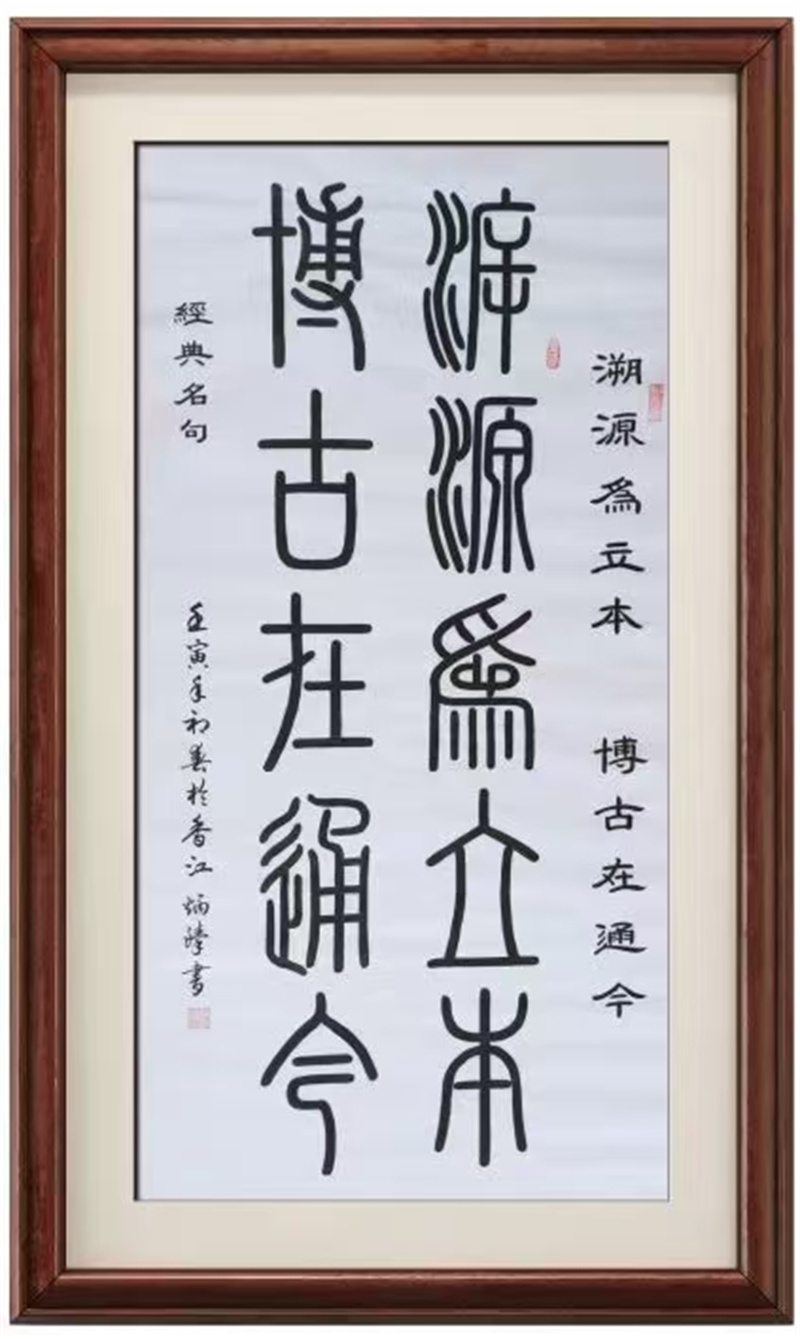 溯源爲立本 博古在通今
泝源爲立本
博古在通今
經典名句
壬寅年初春於香江 炳 書